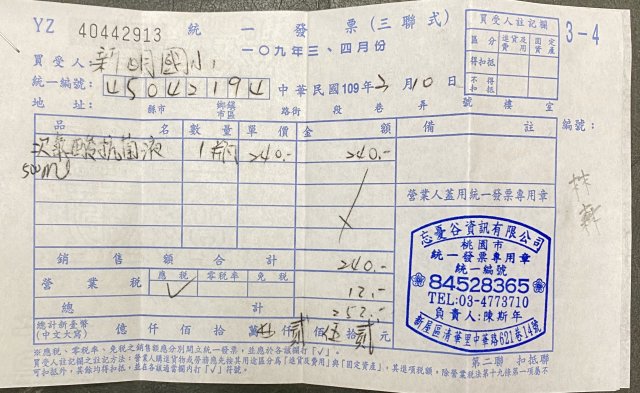 YZ 40442913 統一發票(三聯式)
一〇九年三、四月份
3-4
買受人註記欄
區分 進貨及費用 固定資產
得扣抵
不得扣抵
買受人: 新明國小
統一編號: 45042194 中華民國109年3月10日
地址: 縣市 鄉鎮市區 路街 段 巷 弄 號 樓 室
品名 數量 單價 金額 備註
編號:
次氯酸抗菌液 1 240.- 240.-
500ml
營業人蓋用統一發票專用章
林
銷售額合計 240.-
營業稅 應稅 零稅率 免稅 12.-
✓
總計 252.-
總計新臺幣 億 仟 佰 拾 萬 仟 貳 佰 伍 拾 貳 元
(中文大寫)
忘憂谷資訊有限公司
桃園市
統一發票專用章
統一編號
84528365
TEL:03-4773710
負責人:陳斯年
新屋區清華里中華路621巷14號
※應稅、零稅率、免稅之銷售額應分別開立統一發票,並應於各該欄打「✓」。
買受人註記欄之註記方法:營業人購進貨物或勞務應先按其用途區分為「進貨及費用」與「固定資產」,其進項稅額,除營業稅法第十九條第一項屬不
可扣抵外,其餘均得扣抵,並在各該適當欄內打「✓」符號。
第二聯 扣抵聯